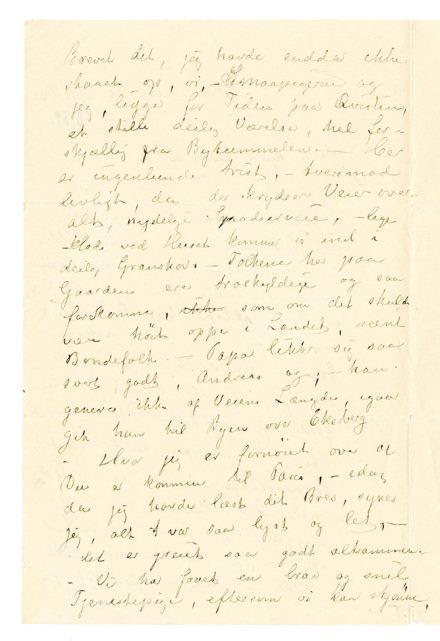 Brevet dit, jeg havde endda ikke
skaaet op, vi, – Smaapigerne og
jeg, ligge for Tiden paa Qverten,
et stille deilig Værelse, hel for=
skjællig fra Bytummelen. – Her
er ingenlunde trist, – tvertimod
livligt, da der krydser Veier over=
alt, nydelige Spadserveie, – lige
ved kommer vi ind i
deilig Granskov. – Folkene her paa
Gaarden ere troskyldige og saa
forekomne, ikke som om det skulde
være höit oppe i Landet, rent
Bondefolk. – Papa liker sig saa
svært godt, Andreas og, – han
generes ikke af Veiens Længde, igaar
gik han til Byen over Ekeberg
– Hvor jeg er fornöiet over at
Du er kommen til Paris, – idag
da jeg havde læst dit Brev, synes
jeg, alt var saa lyst og let, –
det er greit saa godt altsammen.
– Vi har faaet en brav og snil
Tjenestepige, eftersom vi kan skjönne,